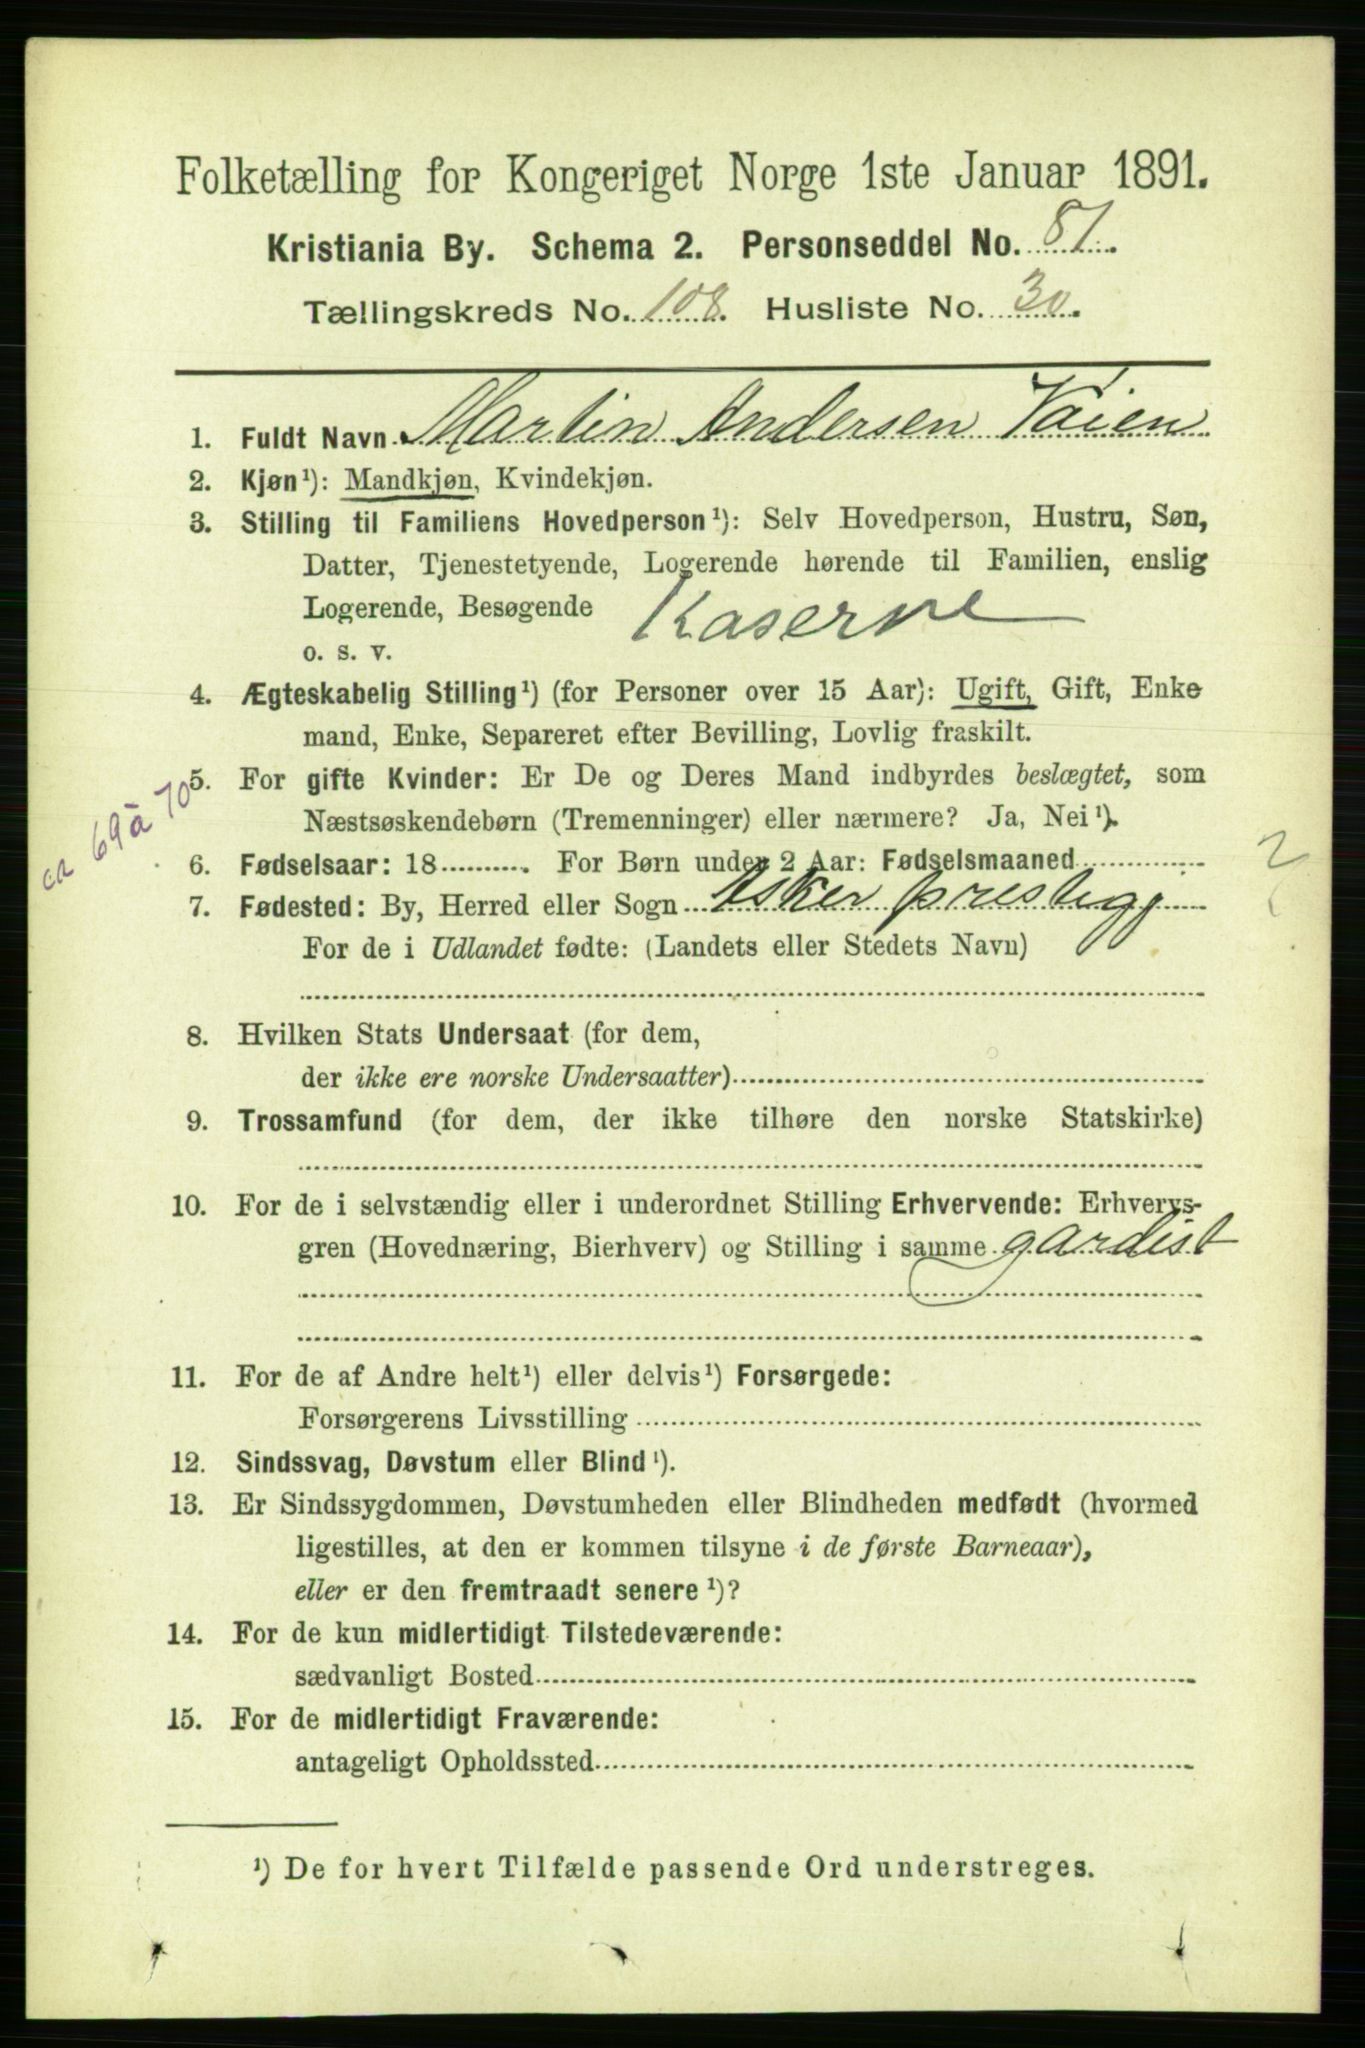 Folketælling for Kongeriget Norge 1ste Januar 1891.
Kristiania By. Schema 2. Personseddel No. 87.
Tællingskreds No. 108. Husliste No. 30.
1. Fuldt Navn Martin Andersen Vaien
2. Kjøn¹): Mandkjøn, Kvindekjøn.
3. Stilling til Familiens Hovedperson¹): Selv Hovedperson, Hustru, Søn,
Datter, Tjenestetyende, Logerende hørende til Familien, enslig
Logerende, Besøgende Kaserne
o. s. v.
4. Ægteskabelig Stilling¹) (for Personer over 15 Aar): Ugift, Gift, Enke
mand, Enke, Separeret efter Bevilling, Lovlig fraskilt.
5. For gifte Kvinder: Er De og Deres Mand indbyrdes beslægtet, som
Næstsøskendebørn (Tremenninger) eller nærmere? Ja, Nei¹).
ca 69 à 70
6. Fødselsaar: 18 . For Børn under 2 Aar: Fødselsmaaned
2
7. Fødested: By, Herred eller Sogn Asker prestegj
For de i Udlandet fødte: (Landets eller Stedets Navn)
8. Hvilken Stats Undersaat (for dem,
der ikke ere norske Undersaatter)
9. Trossamfund (for dem, der ikke tilhøre den norske Statskirke)
10. For de i selvstændig eller i underordnet Stilling Erhvervende: Erhvervs-
gren (Hovednæring, Bierhverv) og Stilling i samme gardist
11. For de af Andre helt¹) eller delvis¹) Forsørgede:
Forsørgerens Livsstilling
12. Sindssvag, Døvstum eller Blind¹).
13. Er Sindssygdommen, Døvstumheden eller Blindheden medfødt (hvormed
ligestilles, at den er kommen tilsyne i de første Barneaar),
eller er den fremtraadt senere¹)?
14. For de kun midlertidigt Tilstedeværende:
sædvanligt Bosted
15. For de midlertidigt Fraværende:
antageligt Opholdssted
¹) De for hvert Tilfælde passende Ord understreges.